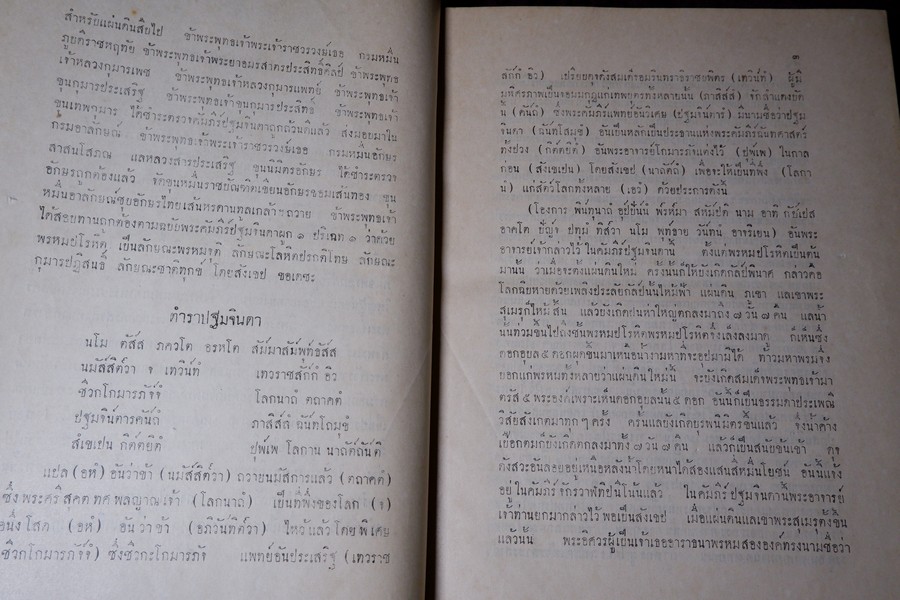 สำหรับแผ่นดินสืบไป ข้าพระพุทธเจ้าพระเจ้าราชวรวงษ์เธอ กรมหมื่น
ภูบดีราชหฤทัย ข้าพระพุทธเจ้าพระยาอมรสาตรประสิทธิ์ศิลป์ ข้าพระพุทธ
เจ้าหลวงกุมารเพช ข้าพระพุทธเจ้าหลวงกุมารแพทย์ ข้าพระพุทธเจ้า
ขุนกุมารประเสริฐ ข้าพระพุทธเจ้าขุนกุมารประสิทธิ์ ข้าพระพุทธเจ้า
ขุนเทพกุมาร ได้ชำระตรวจคัมภีร์ปฐมจินดาถูกถ้วนดีแล้ว ส่งมอบมาใน
กรมอาลักษณ ข้าพระพุทธเจ้าพระเจ้าราชวรวงษ์เธอ กรมหมื่นอักษร
สาสนโสภณ แลหลวงสารประเสริฐ ขุนนิมิตรอักษร ได้ชำระตรวจ
อักษรถูกต้องแล้ว จัดขุนหมื่นราชบัณฑิตเขียนอักษรขอมเส้นทอง ขุน
หมื่นอาลักษณ์ชุบอักษรไทยเส้นหรดานทูลเกล้าฯถวาย ข้าพระพุทธเจ้า
ได้สอบทานถูกต้องตามฉบับพระคัมภีร์ปฐมจินดาผูก ๑ ปริเฉท ๑ ว่าด้วย
พรหมปโรหิต เป็นลักษณะพรหมจุติ ลักษณะโลหิตปรกติโทษ ลักษณะ
กุมารปฏิสนธิ ลักษณะชาติทุกข โดยสังเขป ขอเดชะ
ตำราปฐมจินดา
นโม ตัสส ภควโต อรหโต สัมมาสัมพุทธัสส
นมัสสิตวา จ เทวินทํ เทวราชสักกํ อิว
ชิวกโกมารภัจจํ โลกนาถํ ตถาคตํ
ปฐมจินตารคันถํ ภาสิสสํ ฉันทโถมุขํ
สํเขเปน กิตตยิตํ ปุพเพ โลกาน นาถัตถันติ
แปล (อหํ) อันว่าข้า (นมัสสิตวา) ถวายนมัสการแล้ว (ตถาคตํ)
ซึ่งพระศรีสุคตทศพลญาณเจ้า (โลกนาถํ) เป็นที่พึ่งของโลก (จ)
อนึ่งโสด (อหํ) อันว่าข้า (อภิวันทิตวา) ไหว้แล้วโดยพิเศษ
(ชิวกโกมารภัจจํ) ซึ่งชิวกะโกมารภัจ แพทย์อันประเสริฐ (เทวราช
๓
สักกํ อิว) เปรียบดุจดังสมเด็จอมรินทราธิราชบพิตร (เทวินทํ) ผู้มี
มหิศรภาพเป็นจอมมกุฏแก่เทพยดาทั้งหลายนั้น (ภาสิสสํ) จักสำแดงบัด
นี้ (คันถํ) ซึ่งพระคัมภีร์แพทย์อันวิเศษ (ปฐมจินตาร์) มีนามชื่อว่าปฐม
จินดา (ฉันทโสมุขํ) อันเป็นหลักเป็นประธานแห่งพระคัมภีร์ฉันทศาสตร์
ทั้งปวง (กิตตยิตํ) อันพระอาจารย์โกมารภัจแต่งไว้ (ปุพเพ) ในกาล
ก่อน (สังเขเปน) โดยสังเขป (นาถัตถํ) เพื่อจะให้เป็นที่พึ่ง (โลกา
นํ) แก่สัตว์โลกทั้งหลาย (เอวํ) ด้วยประการดังนี้
(โองการ พินทุนาถํ อุปปันนํ พรหมา สหัมปติ นาม อาทิ กัปเป
อาคโต ปัญจ ปทุมํ ทิสวา นโม พุทธาย วันทนํ อาจริเยน) อันพระ
อาจารย์เจ้ากล่าวไว้ในคัมภีร์ปฐมจินดานี้ ตั้งแต่พรหมปโรหิตเป็นต้น
มานั้น ว่าเมื่อจะตั้งแผ่นดินใหม่ ครั้งนั้นก็ให้บังเกิดกัลป์พินาศ กล่าวคือ
โลกฉิบหายด้วยเพลิงประลัยกัลป์นั้นไหม้ฟ้า แผ่นดิน ภูเขา แลเขาพระ
สุเมรุก็ไหม้สิ้น แล้วยังเกิดฝนห่าใหญ่ตกลงมาถึง ๗ วัน ๗ คืน แลน้ำ
นั้นท่วมขึ้นไปถึงชั้นพรหมปโรหิตพรหมปโรหิตจึงเล็งลงมาดู ก็เห็นซึ่ง
ดอกอุบล ๕ ดอกผุดขึ้นมาเหนือน้ำงามหาที่จะอุปมามิได้ ท้าวมหาพรมจึง
บอกแก่พรหมทั้งหลายว่าแผ่นดินใหม่นี้ จะบังเกิดสมเด็จพระพุทธเจ้ามา
ตรัส ๕ พระองค์เพราะเห็นดอกอุบลนั้น ๕ ดอก อันนี้ก็เป็นธรรมดาประเพณี
วิสัยสังเกตมาทุก ๆ ครั้ง ครั้นแลบังเกิดบุรพนิมิตรขึ้นแล้ว จึงน้ำค้าง
เปือกตมก็บังเกิดตกลงมาทั้ง ๗ วัน ๗ คืน แล้วก็เป็นสนับข้นเข้า ดุจ
ดังสวะอันลอยอยู่เหนือหลังน้ำโดยหนาได้สองแสนสี่หมื่นโยชน์ อันนี้แจ้ง
อยู่ในคัมภีร์จักรวาฬทีปนีโน้นแล้ว ในคัมภีร์ปฐมจินดานี้พระอาจารย์
เจ้าท่านยกมากล่าวไว้พอเป็นสังเขป เมื่อแผ่นดินแลเขาพระสุเมรุตั้งขึ้น
แล้วนั้น พระอิศวรผู้เป็นเจ้าเธออาราธนาพรหมสององค์ทรงนามชื่อว่า